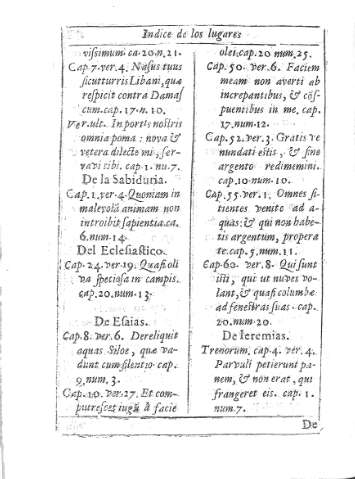 Indice de los lugares
vissimum. ca. 20. n. 21.
Cap. 7. ver. 4. Nasus tuus
sicut turris Libani, quæ
respicit contra Damas
cum. cap. 17. n. 10.
Ver. ult. In portis nostris
omnia poma: nova &
vetera dilecte mi, ser-
vavi tibi. cap. 1. nu. 7.
De la Sabiduria.
Cap. 1. ver. 4. Quoniam in
malevolã animam non
introibit sapientia. ca.
6. num. 14.
Del Eclesiastico.
Cap. 24. ver. 19. Quasi oli
va speciosa in campis.
cap. 20. num. 13.
De Esaias.
Cap. 8. ver. 6. Dereliquit
aquas Siloe, quæ va-
dunt cum silentio. cap.
9. num. 3.
Cap. 10. ver. 27. Et com-
putrescet iugũ à facie
olei. cap. 20. num. 25.
Cap. 50. ver. 6. Faciem
meam non averti ab
increpantibus, & cõs-
puentibus in me. cap.
17. num. 12.
Cap. 52. ver. 3. Gratis ve
nundati estis, & sine
argento redimemini.
cap. 10. num. 10.
Cap. 55. ver. 1. Omnes si-
tientes venite ad a-
quas: & qui non habe-
tis argentum, propera
te. cap. 5. num. 11.
Cap. 60. ver. 8. Qui sunt
isti, qui ut nubes vo-
lant, & quasi columbæ
ad fenestras suas. cap.
20. num. 20.
De Ieremias.
Trenorum. cap. 4. ver. 4.
Parvuli petierunt pa-
nem, & non erat, qui
frangeret eis. cap. 1.
num. 7.
De